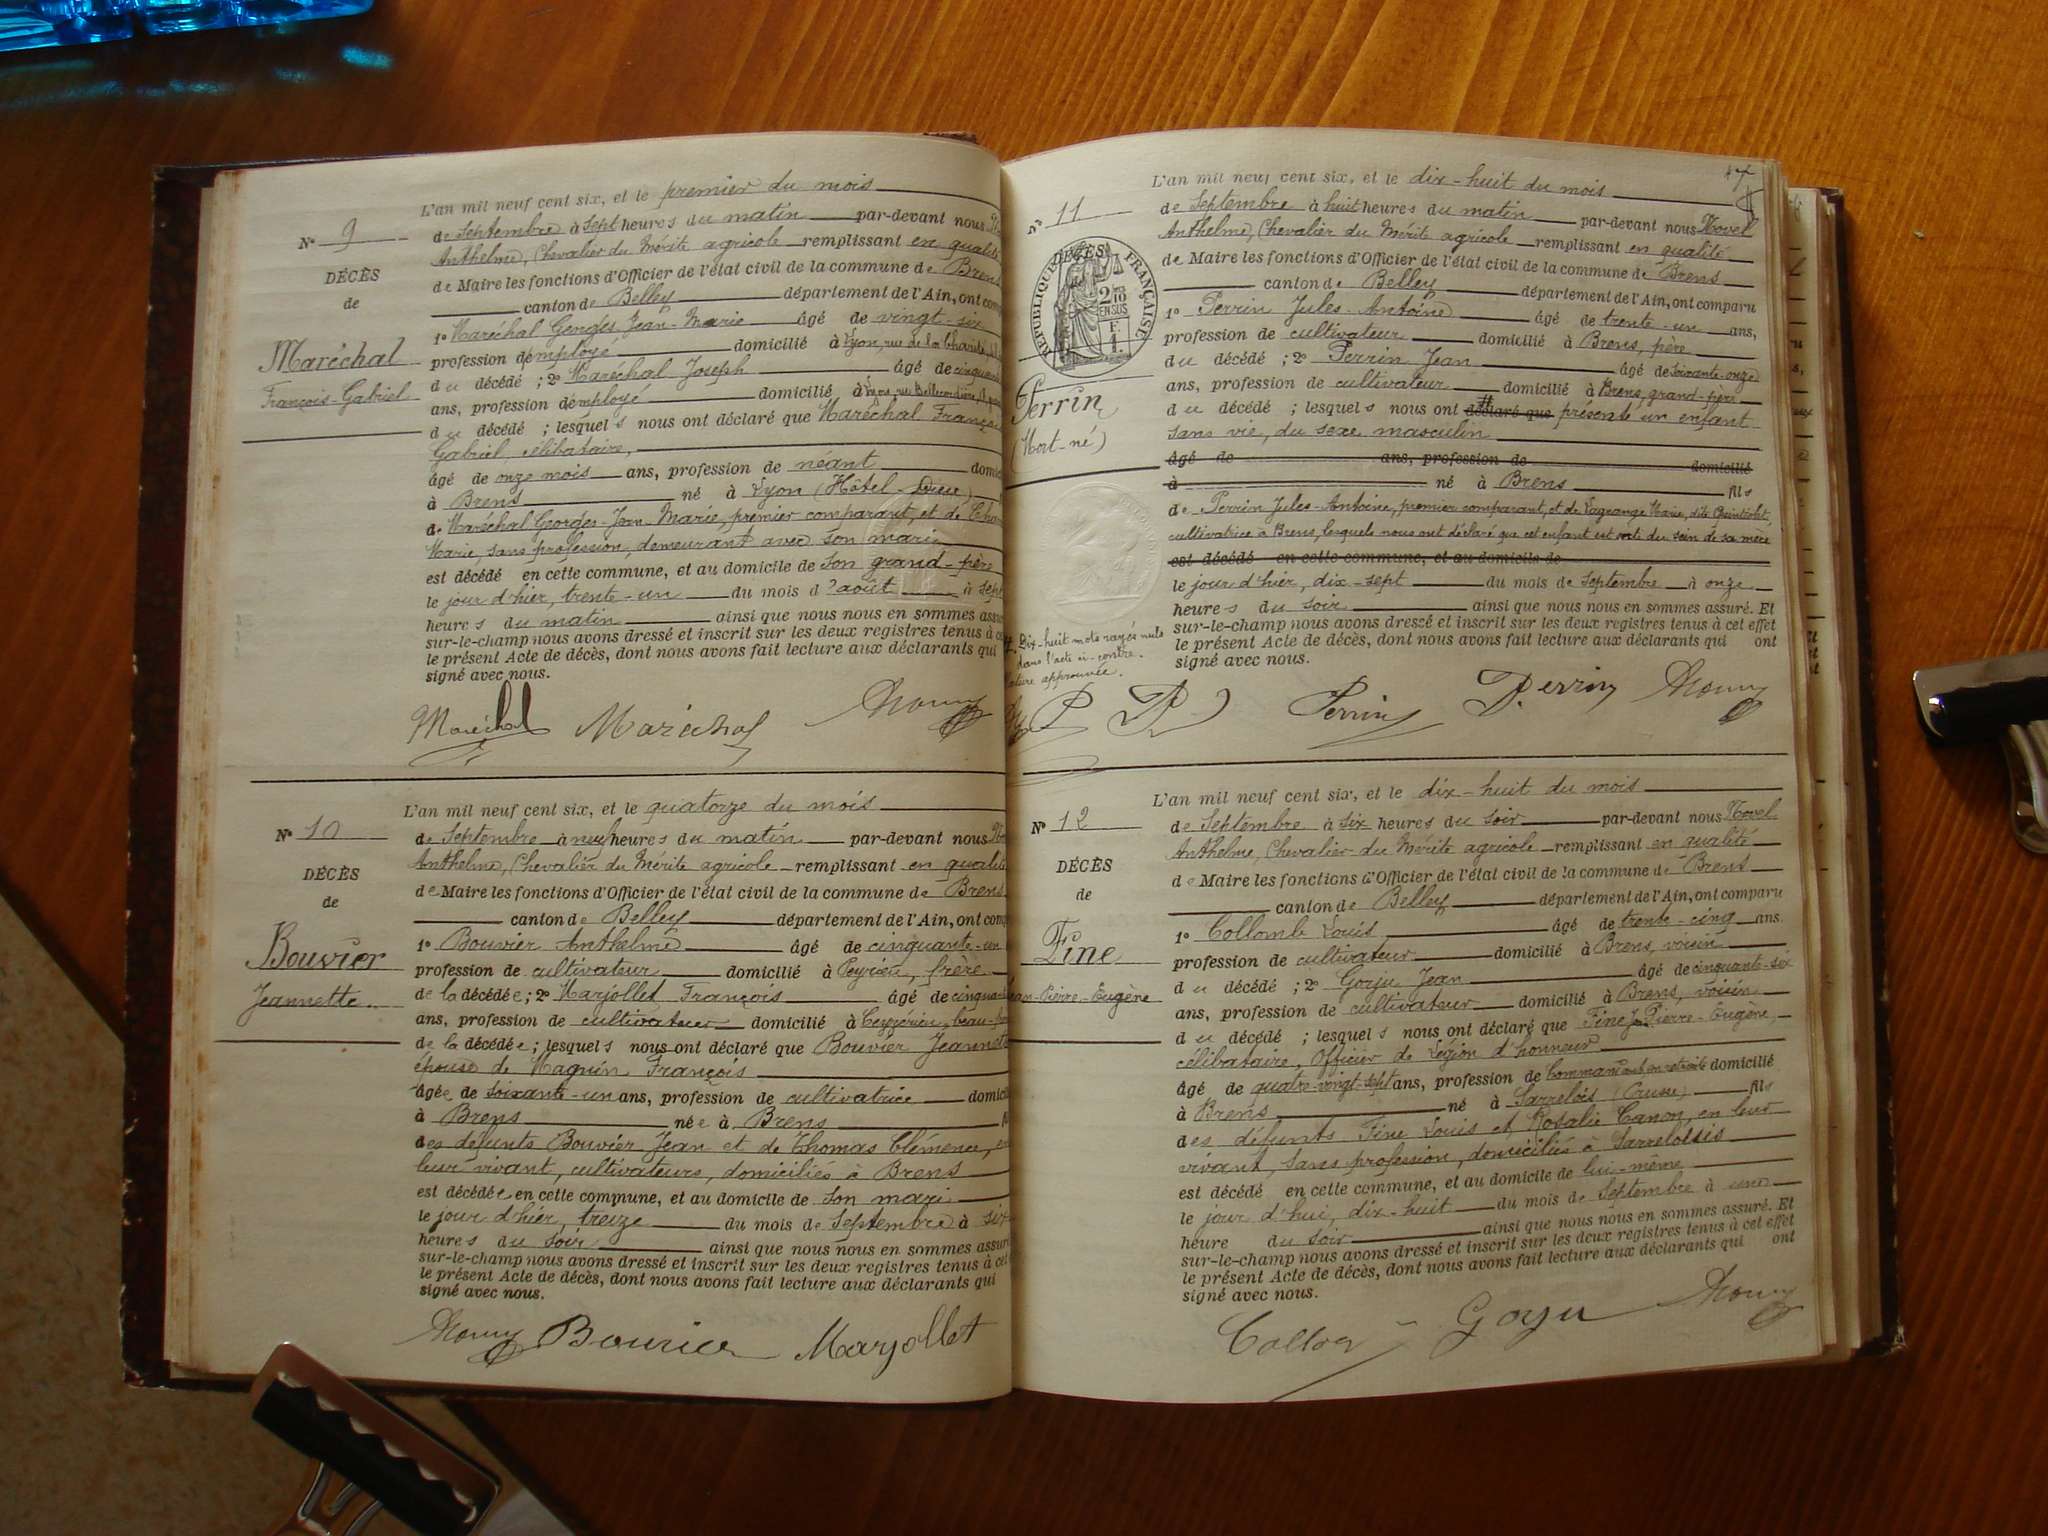 N° 9
DÉCÈS
de
Maréchal
François-Gabriel
L'an mil neuf cent six, et le premier du mois
de Septembre à Sept heures du matin par-devant nous
Anthelme, Chevalier du Mérite agricole remplissant en qualité
de Maire les fonctions d'Officier de l'état civil de la commune de Brens
canton de Belley département de l'Ain, ont
1° Maréchal Georges Jean-Marie âgé de vingt-six
profession d'employé domicilié à Lyon, rue de la Charité,
du décédé ; 2° Maréchal Joseph âgé de
ans, profession d'employé domicilié à Lyon, rue Bellecordière,
du décédé ; lesquels nous ont déclaré que Maréchal
Gabriel célibataire,
âgé de onze mois ans, profession de néant
à Brens né à Lyon (Hôtel-Dieu)
de Maréchal Georges-Jean-Marie, premier comparant, et de
Marie, sans profession, demeurant avec son mari
est décédé en cette commune, et au domicile de son grand-père
le jour d'hier, trente-un du mois d'août à sept
heures du matin ainsi que nous nous en sommes
sur-le-champ nous avons dressé et inscrit sur les deux registres tenus à
le présent Acte de décès, dont nous avons fait lecture aux déclarants qui
signé avec nous.
Maréchal Maréchal
N° 10
DÉCÈS
de
Bouvier
Jeannette
L'an mil neuf cent six, et le quatorze du mois
de Septembre à neuf heures du matin par-devant nous
Anthelme, Chevalier du Mérite agricole remplissant en qualité
de Maire les fonctions d'Officier de l'état civil de la commune de Brens
canton de Belley département de l'Ain, ont
1° Bouvier Anthelme âgé de cinquante-un
profession de cultivateur domicilié à Peyrieu, frère
de la décédée ; 2° Marjollet François âgé de
ans, profession de cultivateur domicilié à Ceyzérieu,
de la décédée ; lesquels nous ont déclaré que Bouvier
épouse de Magnin François
âgée de soixante-un ans, profession de cultivatrice
à Brens née à Brens
des défunts Bouvier Jean et de Thomas Clémence, en
leur vivant, cultivateurs, domiciliés à Brens
est décédée en cette commune, et au domicile de son mari
le jour d'hier, treize du mois de Septembre à six
heures du soir ainsi que nous nous en sommes
sur-le-champ nous avons dressé et inscrit sur les deux registres tenus à
le présent Acte de décès, dont nous avons fait lecture aux déclarants qui
signé avec nous.
Bouvier Marjollet
47
N° 11
DÉCÈS
de
RÉPUBLIQUE FRANÇAISE
2/10 EN SUS
Perrin
(Mort-né)
L'an mil neuf cent six, et le dix-huit du mois
de Septembre à huit heures du matin par-devant nous Novel
Anthelme, Chevalier du Mérite agricole remplissant en qualité
de Maire les fonctions d'Officier de l'état civil de la commune de Brens
canton de Belley département de l'Ain, ont comparu
1° Perrin Jules-Antoine âgé de trente-un ans,
profession de cultivateur domicilié à Brens, père
du décédé ; 2° Perrin Jean âgé de soixante-onze
ans, profession de cultivateur domicilié à Brens, grand-père
du décédé ; lesquels nous ont déclaré que présenté un enfant
sans vie, du sexe masculin
âgé de ans, profession de domicilié
à né à Brens fils
de Perrin Jules-Antoine, premier comparant, et de Lagrange Marie, dite
cultivatrice à Brens, lesquels nous ont déclaré que cet enfant est sorti du sein de sa mère
est décédé en cette commune, et au domicile de
le jour d'hier, dix-sept du mois de Septembre à onze
heures du soir ainsi que nous nous en sommes assuré. Et
sur-le-champ nous avons dressé et inscrit sur les deux registres tenus à cet effet
le présent Acte de décès, dont nous avons fait lecture aux déclarants qui ont
signé avec nous.
Dix-huit mots rayés nuls
dans l'acte ci-contre.
approuvée.
Perrin Perrin
N° 12
DÉCÈS
de
Fine
Jean-Pierre-Eugène
L'an mil neuf cent six, et le dix-huit du mois
de Septembre à six heures du soir par-devant nous Novel
Anthelme, Chevalier du Mérite agricole remplissant en qualité
de Maire les fonctions d'Officier de l'état civil de la commune de Brens
canton de Belley département de l'Ain, ont comparu
1° Collomb Louis âgé de trente-cinq ans
profession de cultivateur domicilié à Brens, voisin
du décédé ; 2° Gorju Jean âgé de cinquante-six
ans, profession de cultivateur domicilié à Brens, voisin
du décédé ; lesquels nous ont déclaré que Fine Jean Pierre-Eugène,
célibataire, Officier de Légion d'honneur
âgé de quatre-vingt-sept ans, profession de Commandant en retraite domicilié
à Brens né à Sarrelois (Prusse) fils
des défunts Fine Louis et Rosalie Canon, en leur
vivant, sans profession, domiciliés à Sarreloisis
est décédé en cette commune, et au domicile de lui-même
le jour d'hui, dix-huit du mois de Septembre à une
heure du soir ainsi que nous nous en sommes assuré. Et
sur-le-champ nous avons dressé et inscrit sur les deux registres tenus à cet effet
le présent Acte de décès, dont nous avons fait lecture aux déclarants qui ont
signé avec nous.